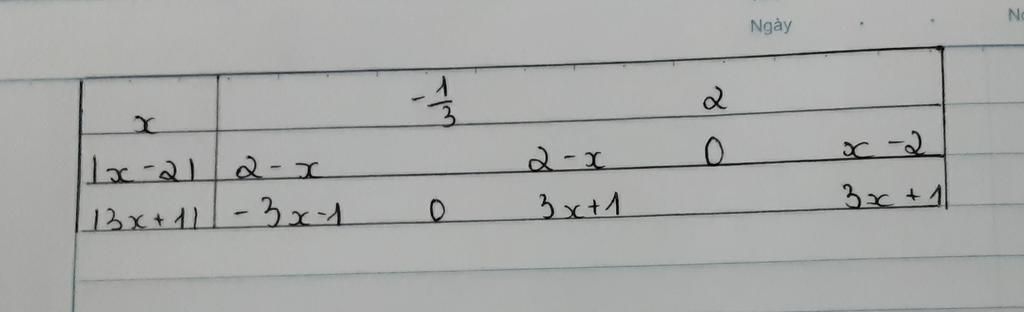 Ngày
x -1/3 2
|x-2| 2-x 2-x 0 x-2
|3x+1| -3x-1 0 3x+1 3x+1